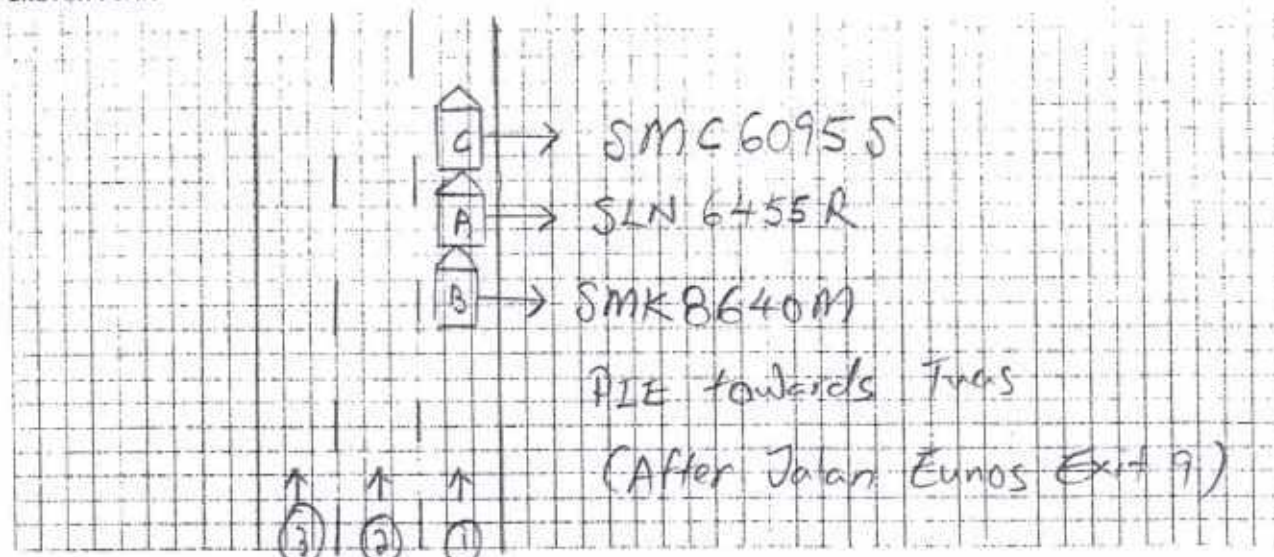 C → SMC6095S
A → SLN6455R
B → SMK8640M
PIE towards Tuas
(After Jalan Eunos Exit 9)
3 2 1